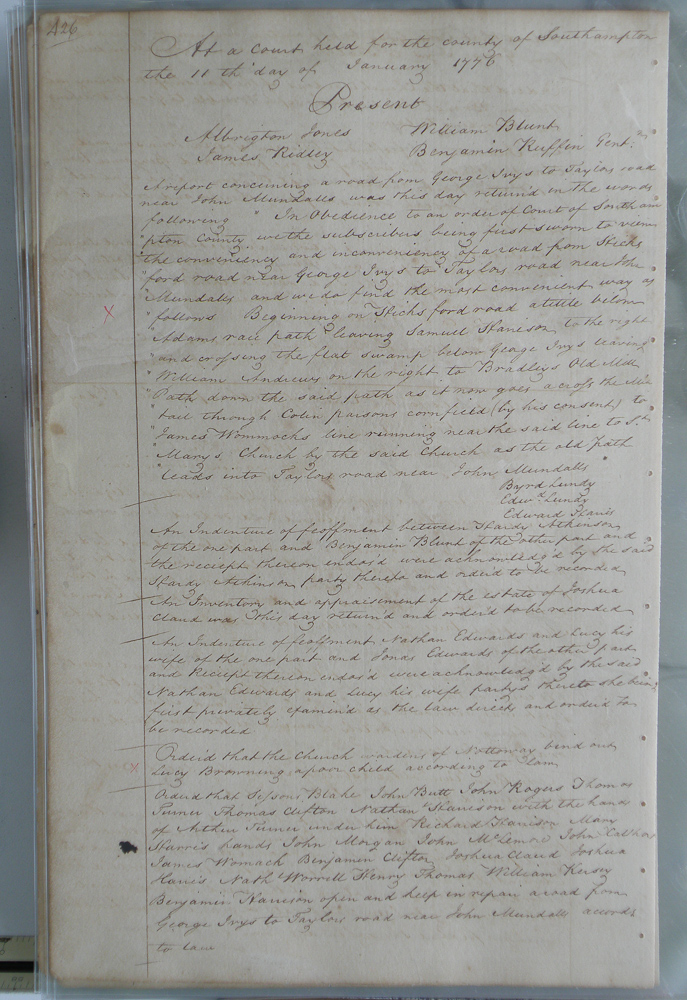 426
At a court held for the county of Southampton
the 11th day of January 1776
Present
Albrighton Jones William Blunt
James Ridley Benjamin Ruffin Gent.
A report concerning a road from George Ivys to Taylors road
near John Mundalls was this day return'd in the words
following " In Obedience to an order of Court of Southam
"pton County we the subscribers being first sworn to view
"the conveniency and inconveniency of a road from
"ford road near George Ivys to Taylors road near John
"Mundalls and we do find the most convenient way as
"follows Beginning on ford road a little below
"Adams race path leaving Samuel Harrison to the right
"and crossing the flat swamp below George Ivys leaving
"William Andrews on the right to Bradleys Old Mill
"Path down the said path as it now goes across the Mill
"tail through Colin parsons cornfield (by his consent) to
"James Wommacks line running near the said line to St.
"Marys Church by the said Church as the old path
"leads into Taylors road near John Mundalls
Byrd Lundy
Edwd. Lundy
Edward
An Indenture of feoffment between Hardy Atkinson
of the one part and Benjamin Blunt of the other part and
the receipt thereon endors'd were acknowledg'd by the said
Hardy Atkinson party thereto and order'd to be recorded
An Inventory and appraisement of the estate of Joshua
Claud was this day return'd and order'd to be recorded
An Indenture of feoffment Nathan Edwards and Lucy his
wife of the one part and Jonas Edwards of the other part
and Receipt thereon endors'd were acknowledg'd by the said
Nathan Edwards and Lucy his wife partys thereto she being
first privately examin'd as the law directs and order'd to
be recorded
Order'd that the Church wardens of Nottoway bind out
Lucy Browning a poor child according to Law
Order'd that Blake John Butt John Rogers Thomas
Turner Thomas Clifton Nathan Harrison with the hands
of Arthur Turner under him Richard Harrison Mary
Harris's hands John Morgan John McLemore John
James Womack Benjamin Clifton Joshua Claud Joshua
Harris Nath Worrell Henry Thomas William Kersey
Benjamin Harrison open and keep in repair a road from
George Ivys to Taylors road near John Mundalls accordg
to law